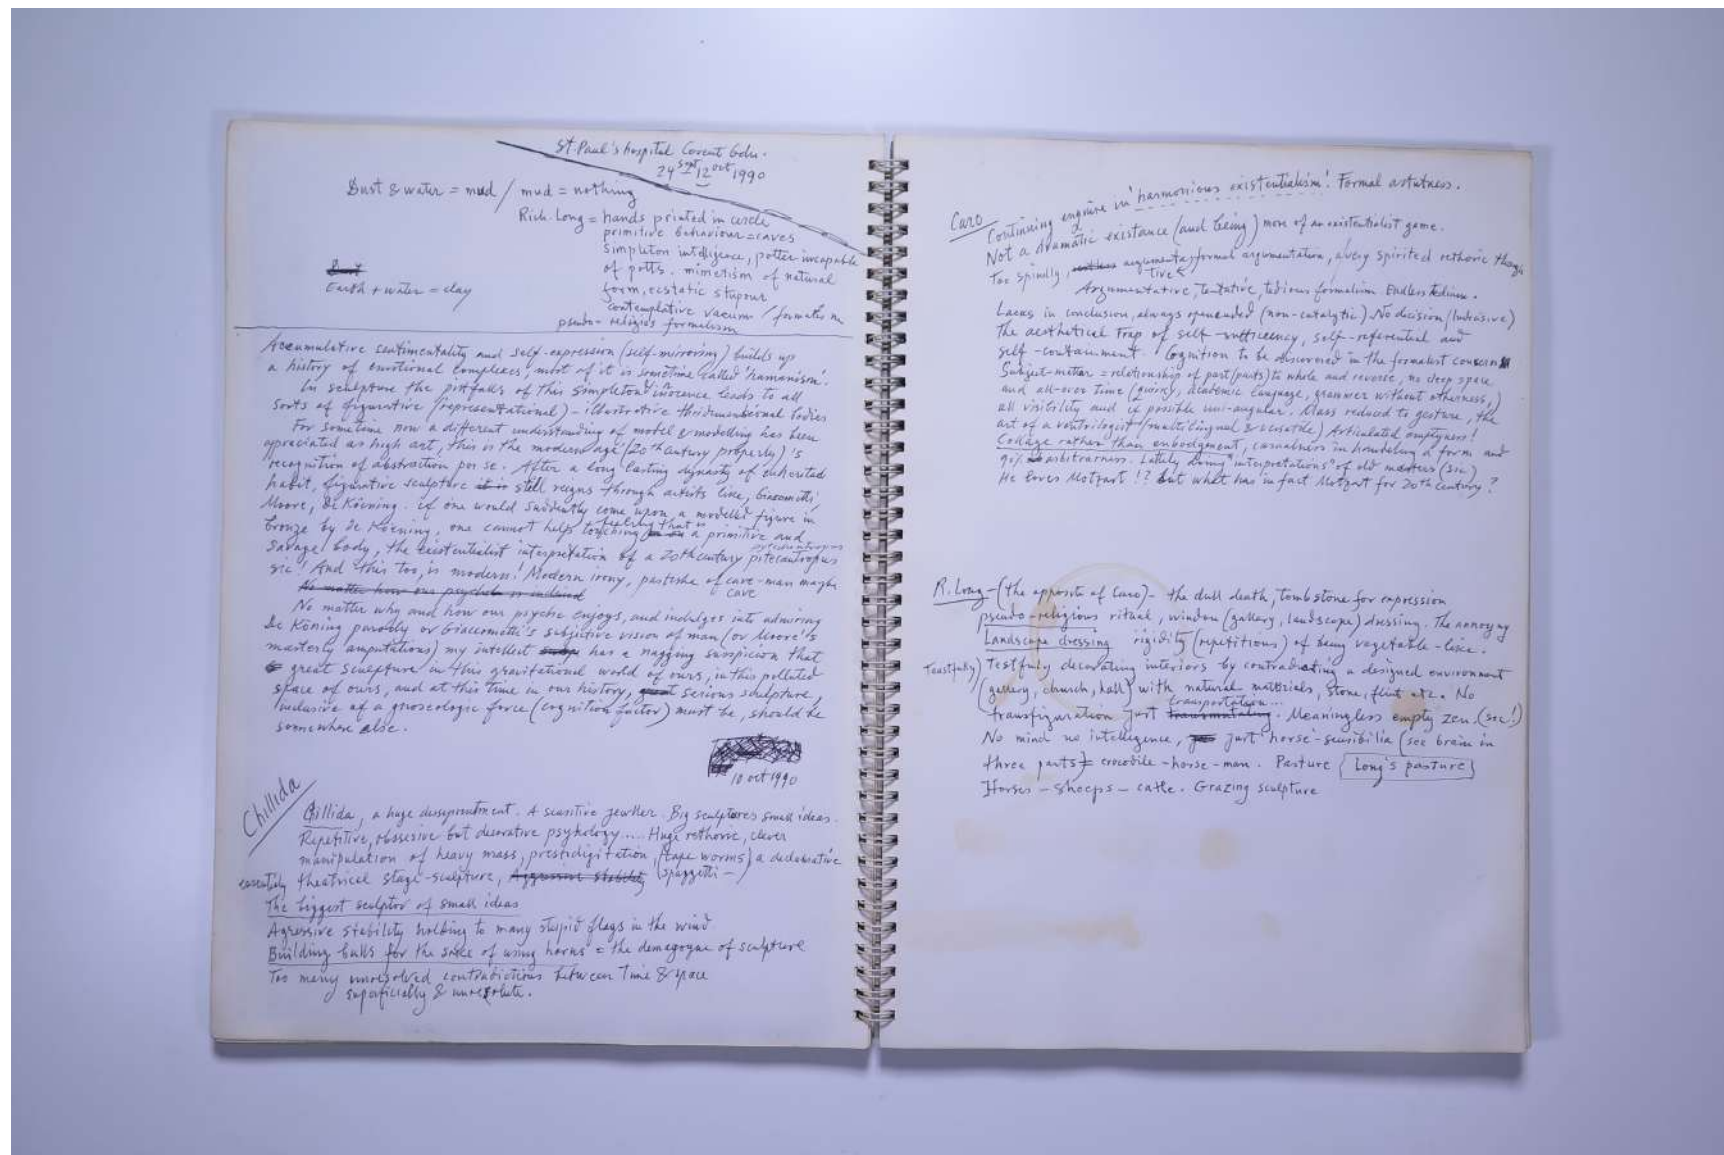 St. Paul's hospital Covent Gdn.
24 Sept 12 oct 1990
Dust & water = mud / mud = nothing
Rich. Long = hands printed in circle
primitive behaviour = caves
simpleton intelligence, potter incapable
of potts. mimetism of natural
form, ecstatic stupour
contemplative vacum / formates
pseudo-religios formalism
Dust
Earth + water = clay
Accumulative sentimentality and self-expression (self-mirroring) builds up
a history of emotional complexes, most of it is sometime called 'humanism'.
In sculpture the pittfalls of this simpletond inocence leads to all
sorts of figurative (representational) - illustrative thridimensional bodies
For sometime now a different understanding of model & modelling has been
appreciated as high art, this is the modern age (20th century property)'s
recognition of abstraction per se. After a long lasting dynasty of enherited
habit, figurative sculpture it is still reigns through artists like, Giacometti,
Moore, De Koening. if one would suddenly come upon a modelled figure in
bronze by De Koening, one cannot help feeling that is a primitive and
savage body, the existentialist interpretation of a 20th century pitecantropus
sic! And this too, is modern! Modern irony, pastishe of cave-man maybe
cave
No matter how our psyche is indeed
No matter why and how our psyche enjoys, and indulges into admiring
De Köning parody or Giaccometti's subjective vision of man (or Moore's
masterly amputations) my intellect has a nagging suspicion that
great sculpture in this gravitational world of ours, in this polluted
space of ours, and at this time in our history, great serious sculpture,
inclusive of a gnoseologic force (cognition factor) must be, should be
somewhere else.
10 oct 1990
Chillida
Chillida, a huge dissapointment. A sensitive jeweller. Big sculptures small ideas.
Repetitive, obssesive but decorative psychology.... Huge rethoric, clever
manipulation of heavy mass, prestidigitation, (tape worms) a declamative
essentialy theatrical stage-sculpture, Aggressive stability (spaggetti -)
The biggest sculptor of small ideas
Agressive stability holding to many stupid flags in the wind
Building bulls for the sake of using horns = the demagogue of sculpture
Too many unresolved contradictions between Time & space
superficially & unresolute.
Caro
Continuing enquire in 'harmonious existentialism'. Formal astutness.
Not a dramatic existance (and being) more of an existentialist game.
Too spindly, argumentative formal argumentation, a very spirited rethoric though
Argumentative, tentative, tedious formalism. Endless tedium.
Lacus in conclusion, always openended (non-catalytic) No decision (indicisive)
The aesthetical trap of self-sufficency, self-referential and
self-containment. Cognition to be discovered in the formalist concerns
Subject-matter = relationship of part (parts) to whole and reverse, no deep space
and all-over time (quirry, academic language, grammer without otherness,)
all visibility and if possible uni-angular. Mass reduced to gesture, the
art of a ventrilogist (multilingual & versatile) Articulated emptyness!
Collage rather than embodgment, casualness in handeling a form and
90% arbitrarness. Lattely doing "interpretations" of old masters (sic)
He loves Motzart!? But what has in fact Motzart for 20th century?
R. Long - (the opposite of Caro) - the dull death, tombstone for expression
pseudo-religious ritual, window (gallery, landscape) dressing. The annoying
Landscape dressing rigidity (repetitious) of being vegetable-like.
Teastfully) Testfuly decorating interiors by contradicting a designed environment
(gallery, church, hall) with natural matterials, stone, flint etc. No
transfiguration just transportation... transmutating. Meaningless empty zen. (sic!)
No mind no intellegence, just 'horse'-sensibilia (see brain in
three parts) = crocodile-horse-man. Pasture (Long's pasture)
Horses - sheeps - catle. Grazing sculpture